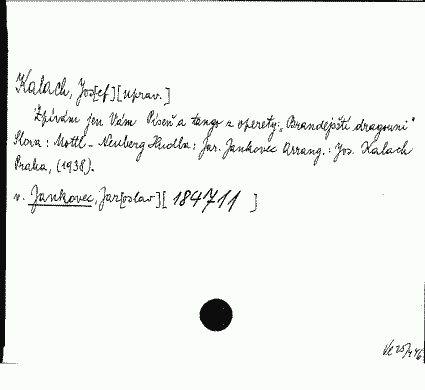 Kalach, Jos[ef] [uprav.]
Zpívám jen Vám Píseň a tango z operety: „Brandejští dragouni"
Slova: Mottl - Neuberg Hudba: Jar. Jankovec Arrang.: Jos. Kalach
Praha, (1938).
v. Jankovec, Jar[oslav] [184711 ]